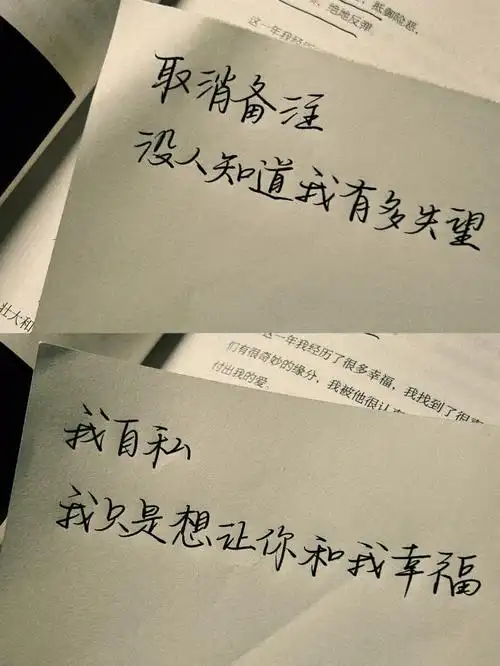 抵御险恶,
绝地反弹
这一年我经历
取消备注
没人知道我有多失望
壮大和
这一年我经历了很多幸福,我找到了很
们有很奇妙的缘分,我被他很认
付出我的爱.
我自私
我只是想让你和我幸福